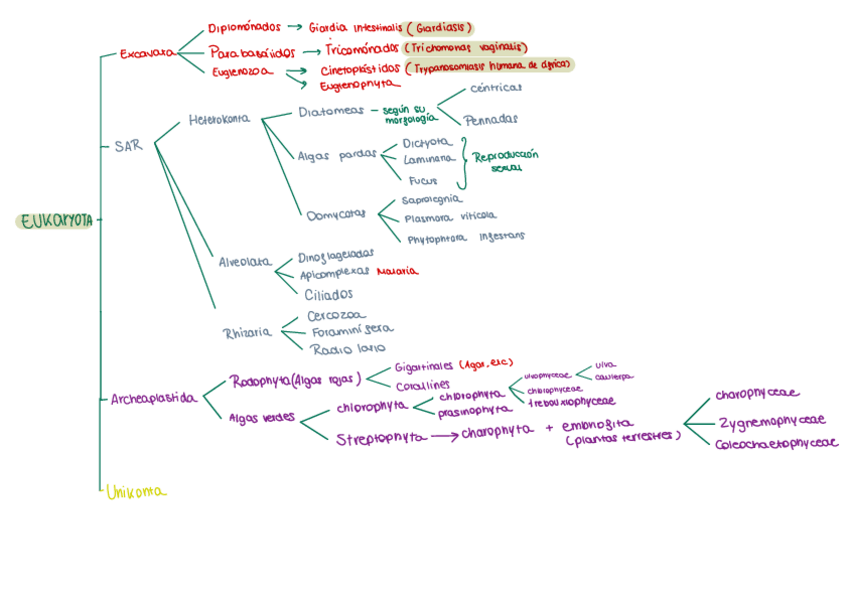 EUKARYOTA
Excavata
Diplomónados → Giardia intestinalis (Giardiasis)
Parabasálidos → Tricomónados (Trichomonas vaginalis)
Euglenozoa → Cinetoplástidos (Trypanosomiasis humana de áfrica)
Euglenophyta
SAR
Heterokonta
Diatomeas - según su morfología
céntricas
Pennadas
Algas pardas
Dictyota
Laminaria
Fucus
Reproducción sexual
Oomycotas
Saprolegnia
Plasmora viticola
Phytophtora infestans
Alveolata
Dinoflagelados
Apicomplexas Malaria
Ciliados
Rhizaria
Cercozoa
Foraminifera
Radiolario
Archeaplastida
Rodophyta (Algas rojas)
Gigartinales (Agar, etc)
Corallines
Algas verdes
chlorophyta
chlorophyta
ulvophyceae
ulva
caulerpa
chlorophyceae
trebouxiophyceae
prasinophyta
Streptophyta → charophyta + embriofita
(plantas terrestres)
charophyceae
Zygnemophyceae
Coleochaetophyceae
Unikonta